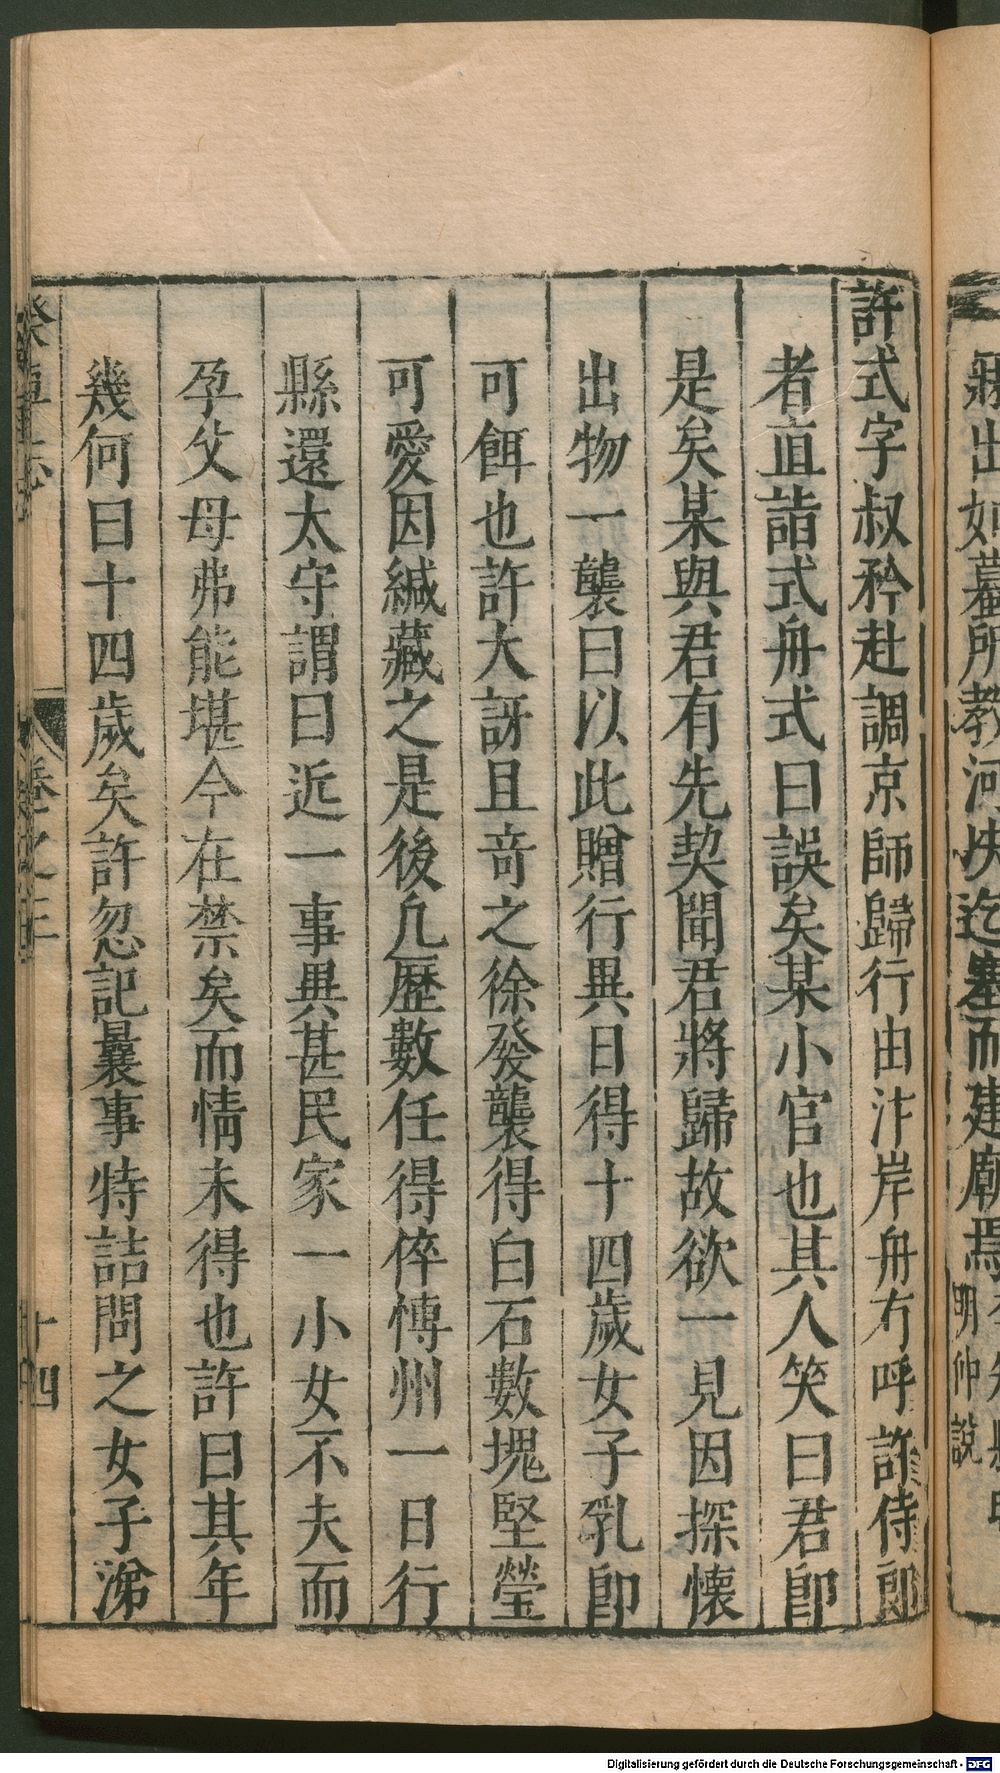 許式字叔矜赴調京師歸行由汴岸舟有呼許侍郎
者直詣式舟式曰誤矣某小官也其人笑曰君卽
是矣某與君有先契聞君將歸故欲一見因探懷
出物一襲曰以此贈行異日得十四歲女子乳卽
可餌也許大訝且竒之徐發襲得白石數塊堅瑩
可愛因緘藏之是後凡歷數任得倅慱州一日行
縣還太守謂曰近一事異甚民家一小女不夫而
孕父母弗能堪今在禁矣而情未得也許曰其年
幾何曰十四歲矣許忽記曩事特詰問之女子涕
卷之三
十四
Digitalisierung gefördert durch die Deutsche Forschungsgemeinschaft - DFG